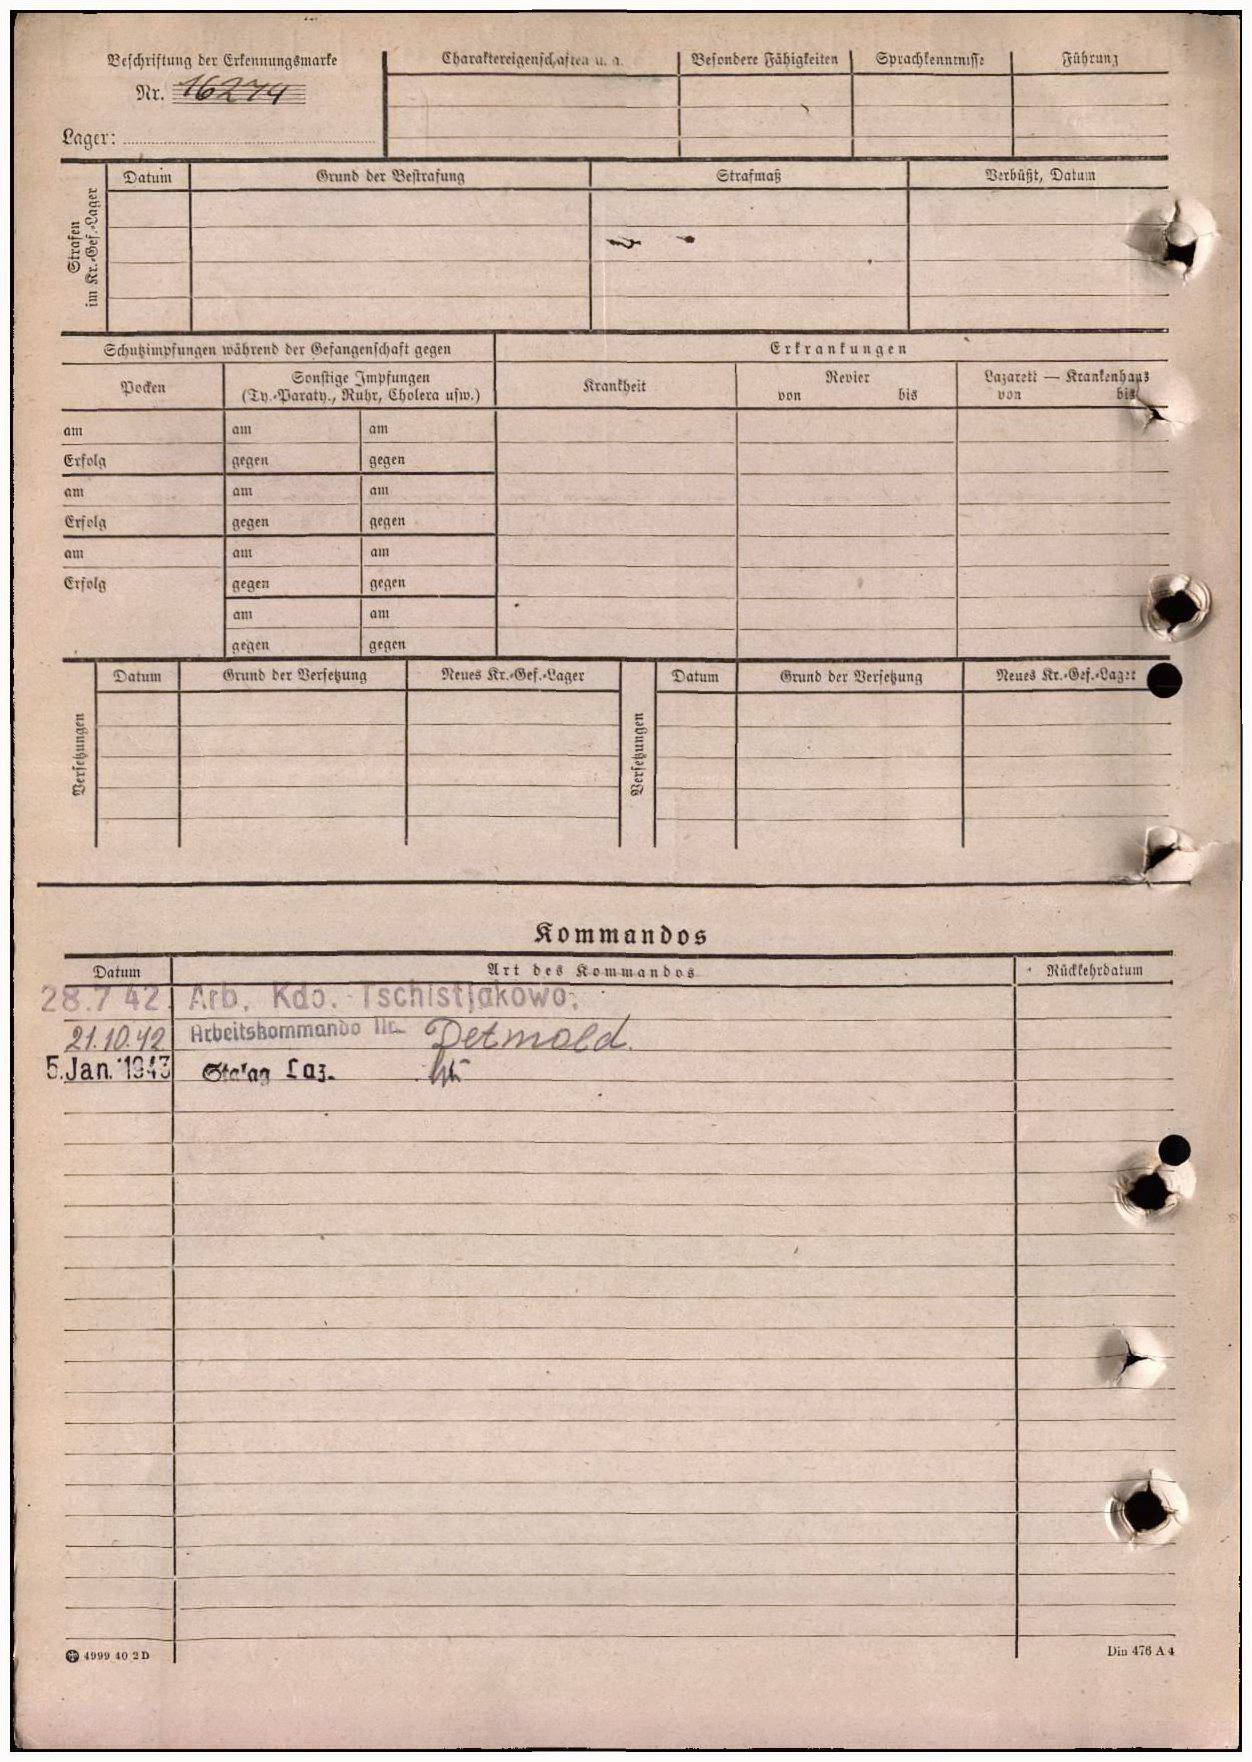 Beschriftung der Erkennungsmarke
Nr. 16274
Lager:
Charaktereigenschaften u. a.
Besondere Fähigkeiten
Sprachkenntnisse
Führung
Strafen
im Kr.-Gef.-Lager
Datum
Grund der Bestrafung
Strafmaß
Verbüßt, Datum
Schutzimpfungen während der Gefangenschaft gegen
Erkrankungen
Pocken
Sonstige Impfungen
(Ty.-Paraty., Ruhr, Cholera usw.)
Krankheit
Revier
von bis
Lazarett — Krankenhaus
von bis
am am am
Erfolg gegen gegen
am am am
Erfolg gegen gegen
am am am
Erfolg gegen gegen
am am
gegen gegen
Versetzungen
Datum
Grund der Versetzung
Neues Kr.-Gef.-Lager
Versetzungen
Datum
Grund der Versetzung
Neues Kr.-Gef.-Lager
Kommandos
Datum
Art des Kommandos
Rückkehrdatum
28.7 42 Arb. Kdo. Tschistjakowo.
21.10.42 Arbeitskommando Nr. Detmold.
5. Jan. 1943 Stalag Laz.
4999 40 2 D
Din 476 A 4